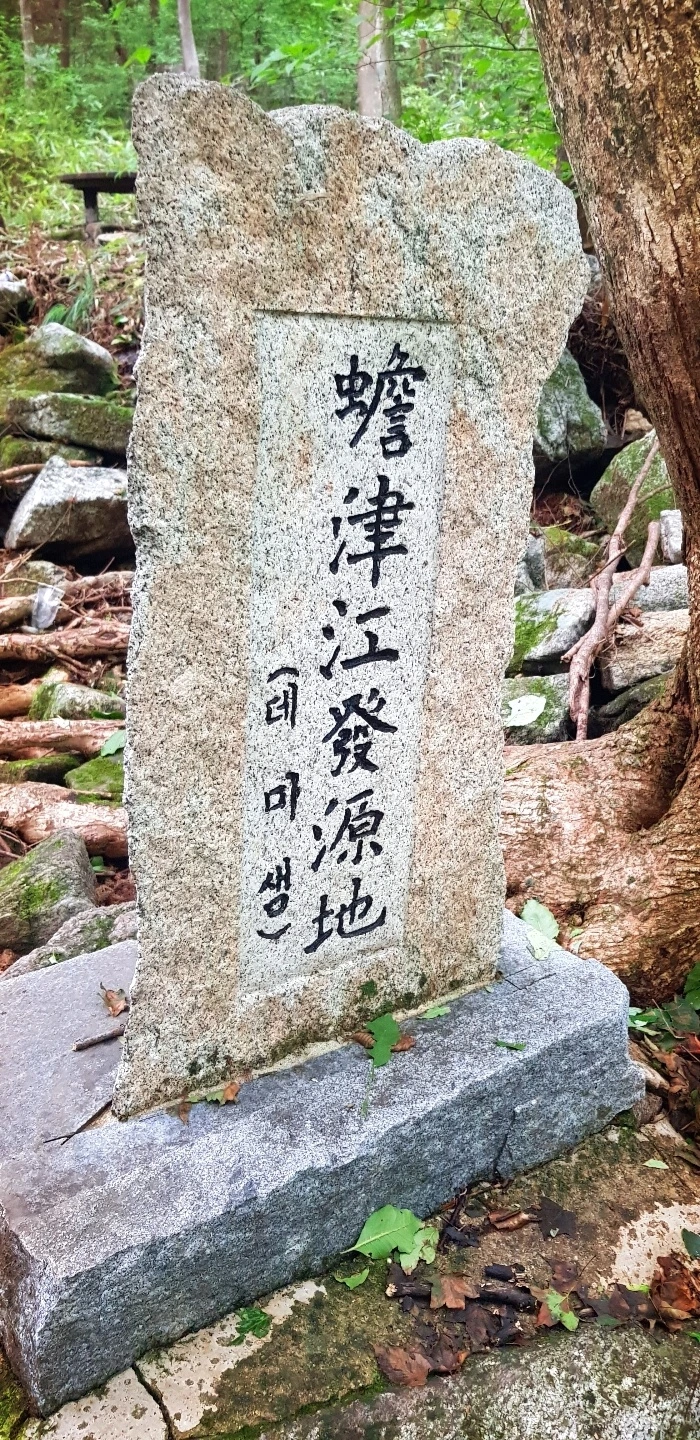 蟾津江發源地
(데미샘)